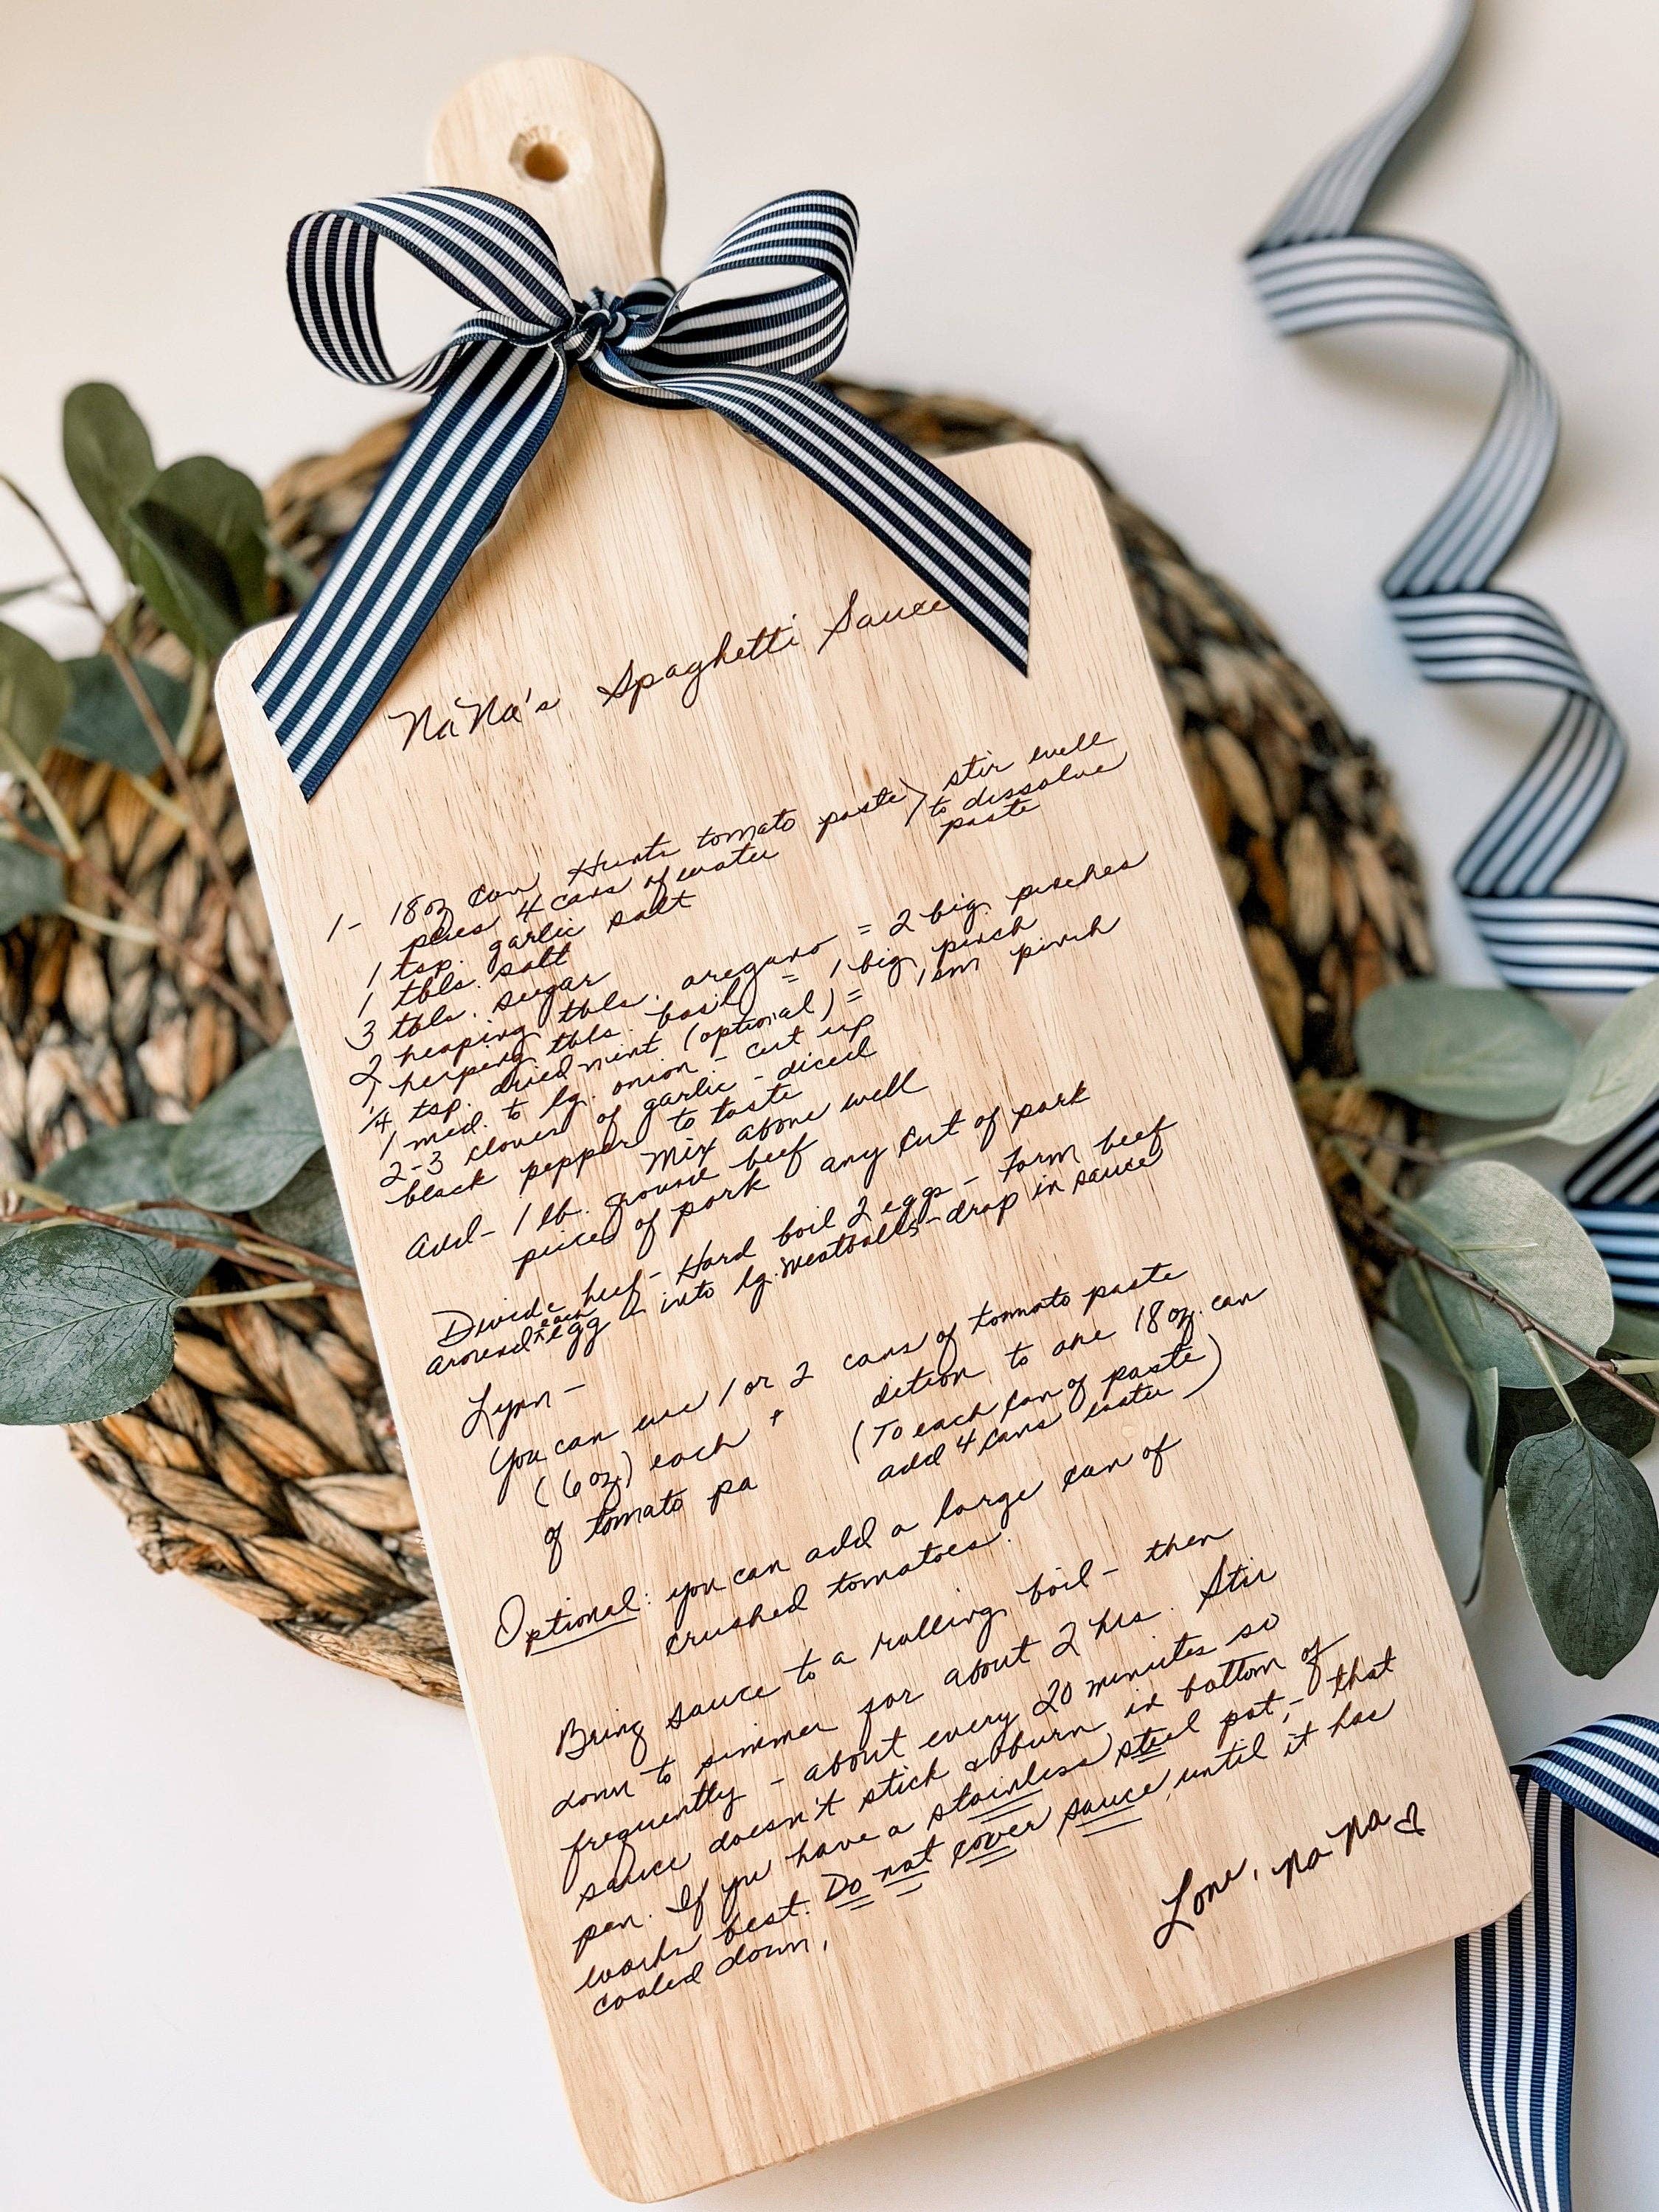 NaNa's Spaghetti Sauce
1- 18oz can Hunts tomato paste) stir well
plus 4 cans of water to dissolve
paste
1 tsp. garlic salt
1 tbls. salt
3 tbls. sugar
2 heaping tbls. oregano = 2 big pinches
1 heaping tbls. basil = 1 big pinch
1/4 tsp. dried mint (optional) = 1 sm pinch
1 med. to lg. onion - cut up
2-3 cloves of garlic - diced
black pepper to taste
Mix above well
Add- 1 lb. ground beef
pieces of pork any cut of pork
Divide beef- Hard boil 2 eggs - Form beef
around each egg & into lg. meatballs - drop in sauce
Lynn -
You can use 1 or 2 cans of tomato paste
(6oz) each + dition to one 18oz. can
of tomato pa (To each can of paste
add 4 cans water)
Optional: you can add a large can of
crushed tomatoes.
Bring sauce to a rolling boil - then
down to simmer for about 2 hrs. Stir
frequently - about every 20 minutes so
sauce doesn't stick & burn in bottom of
pan. If you have a stainless steel pot,- that
works best. Do not cover sauce, until it has
cooled down,
Love, na na